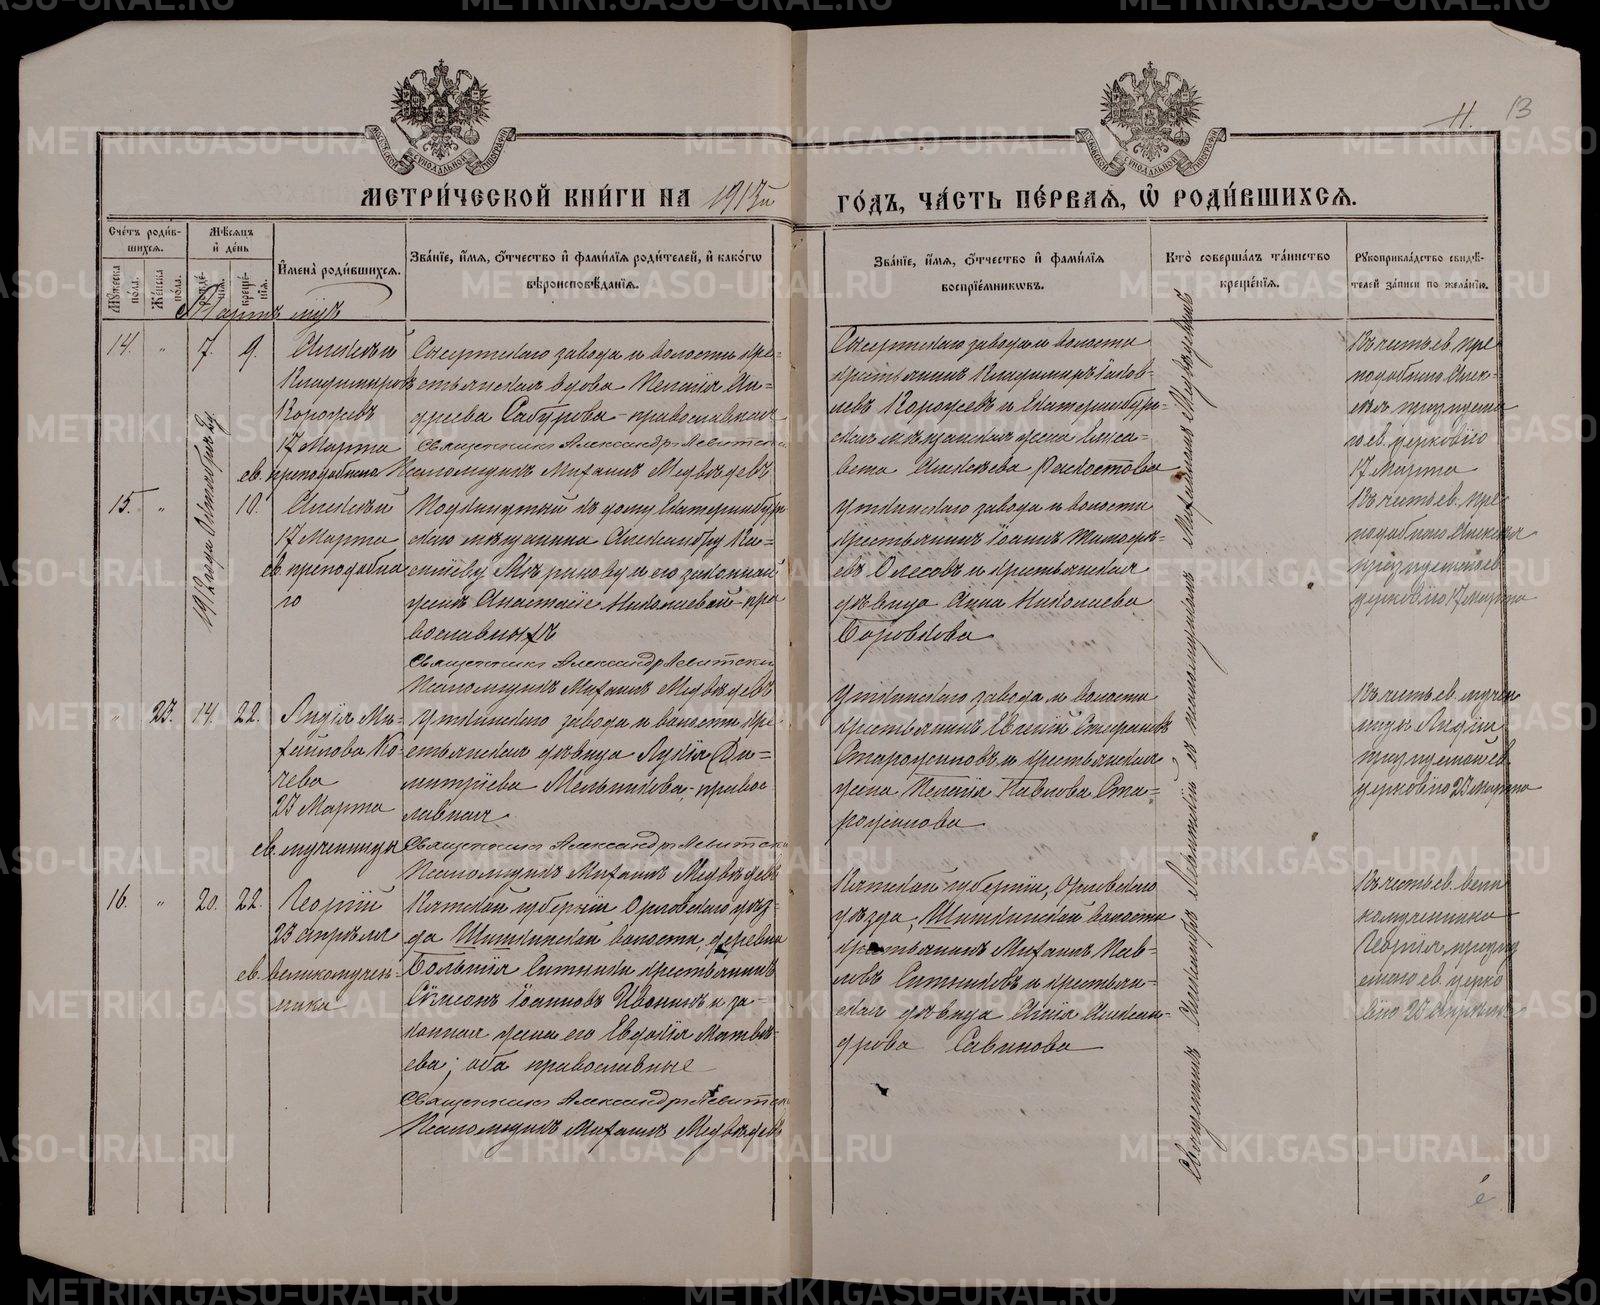 METRIKI.GASO-URAL.RU
11. 13
МОСКОВСКОЙ СѴНОДАЛЬНОЙ ТИПОГРАФІИ
МЕТРИ́ЧЕСКОЙ КНИ́ГИ НА 1913й ГО́ДЪ, ЧА́СТЬ ПЕ́РВАѦ, Ѡ҆ РОДИ́ВШИХСѦ.
Сче́тъ роди́в-
шихсѧ.
Мꙋ́жеска по́ла.
Же́нска по́ла.
Мѣ́сѧцъ
и҆ де́нь
рожде́-
нїѧ.
креще́-
нїѧ.
И҆мена̀ роди́вшихсѧ.
Зва́нїе, и҆́мѧ, ѻ҆́тчество и҆ фами́лїѧ роди́телей, и҆ како́гѡ
вѣроисповѣ́данїѧ.
Зва́нїе, и҆́мѧ, ѻ҆́тчество и҆ фами́лїѧ
воспрїе́мникѡвъ.
Кто̀ соверша́лъ та́инство
креще́нїѧ.
Рꙋкоприкла́дство свидѣ́-
телей за́писи по жела́нїю.
Мартъ
14. " 7. 9.
Алексѣй
Владиміровъ
Коросевъ
17 Марта
св. преподобнаго
Сысертскаго завода и волости кре-
стьянская вдова Пелагія Ан-
дреева Сабурова – православная
Священникъ Александръ Левитскій
Псаломщикъ Михаилъ Медвѣдевъ
Сысертскаго завода и волости
крестьянинъ Владиміръ Іаков-
левъ Коросевъ и Екатеринбург-
ская мѣщанская жена Елиса-
вета Алексѣева
Въ честь св. пре
подобнаго Алек-
сѣя празднуема
го св. церковію
17 Марта
15. " 10.
1912 года Октября
Алексѣй
17 Марта
св. преподобна
го
Подкинутый къ дому Екатеринбург
скаго мѣщанина Александру Ва-
сильеву и его законной
женѣ Анастасіе Николаевой – пра
вославныхъ
Священникъ Александръ Левитскій
Псаломщикъ Михаилъ Медвѣдевъ
Уткинскаго завода и волости
крестьянинъ Іоаннъ Тимоѳѣ-
евъ Олесовъ и крестьянская
дѣвица Анна Николаева
Боровкова
Въ честь св. пре
подобнаго Алексѣя
празднуемаго св
церковію 17 Марта
" 23. 14. 22.
Лидія Ми-
хайлова Ко-
чева
23 Марта
св. мученицы
Уткинскаго завода и волости кре-
стьянская дѣвица Лукія Ди-
митріева Мельникова; правос
лавная
Священникъ Александръ Левитскій
Псаломщикъ Михаилъ Медвѣдевъ
Уткинскаго завода и волости
крестьянинъ Евгеній Стефановъ
Старожиловъ и крестьянская
жена Пелагія Павлова Ста-
рожилова
Въ честь св. мучен
ицы Лидіи
празднуемой св.
церковію 23 Марта
16. " 20. 22.
Георгій
23 апрѣля
св. великомучен-
ника
Вятской губерніи Орловскаго уѣз-
да Шишкинской волости, деревни
Большія Ситники крестьянинъ
Сѵмеонъ Іоанновъ Ивонинъ и за-
конная жена его Евдокія Матвѣ-
ева; оба православные
Священникъ Александръ Левитскій
Псаломщикъ Михаилъ Медвѣдевъ
Вятской губерніи, Орловскаго
уѣзда, Шишкинской волости
крестьянинъ Михаилъ Пав-
ловъ Ситниковъ и крестьян-
ская дѣвица Алексан-
дрова Савинова
Въ честь св. вели
комученика
Георгія празд
емаго св. церко
вію 23 апрѣля
Священникъ Александръ Левитскій съ псаломщикомъ Михаиломъ Медвѣдевымъ